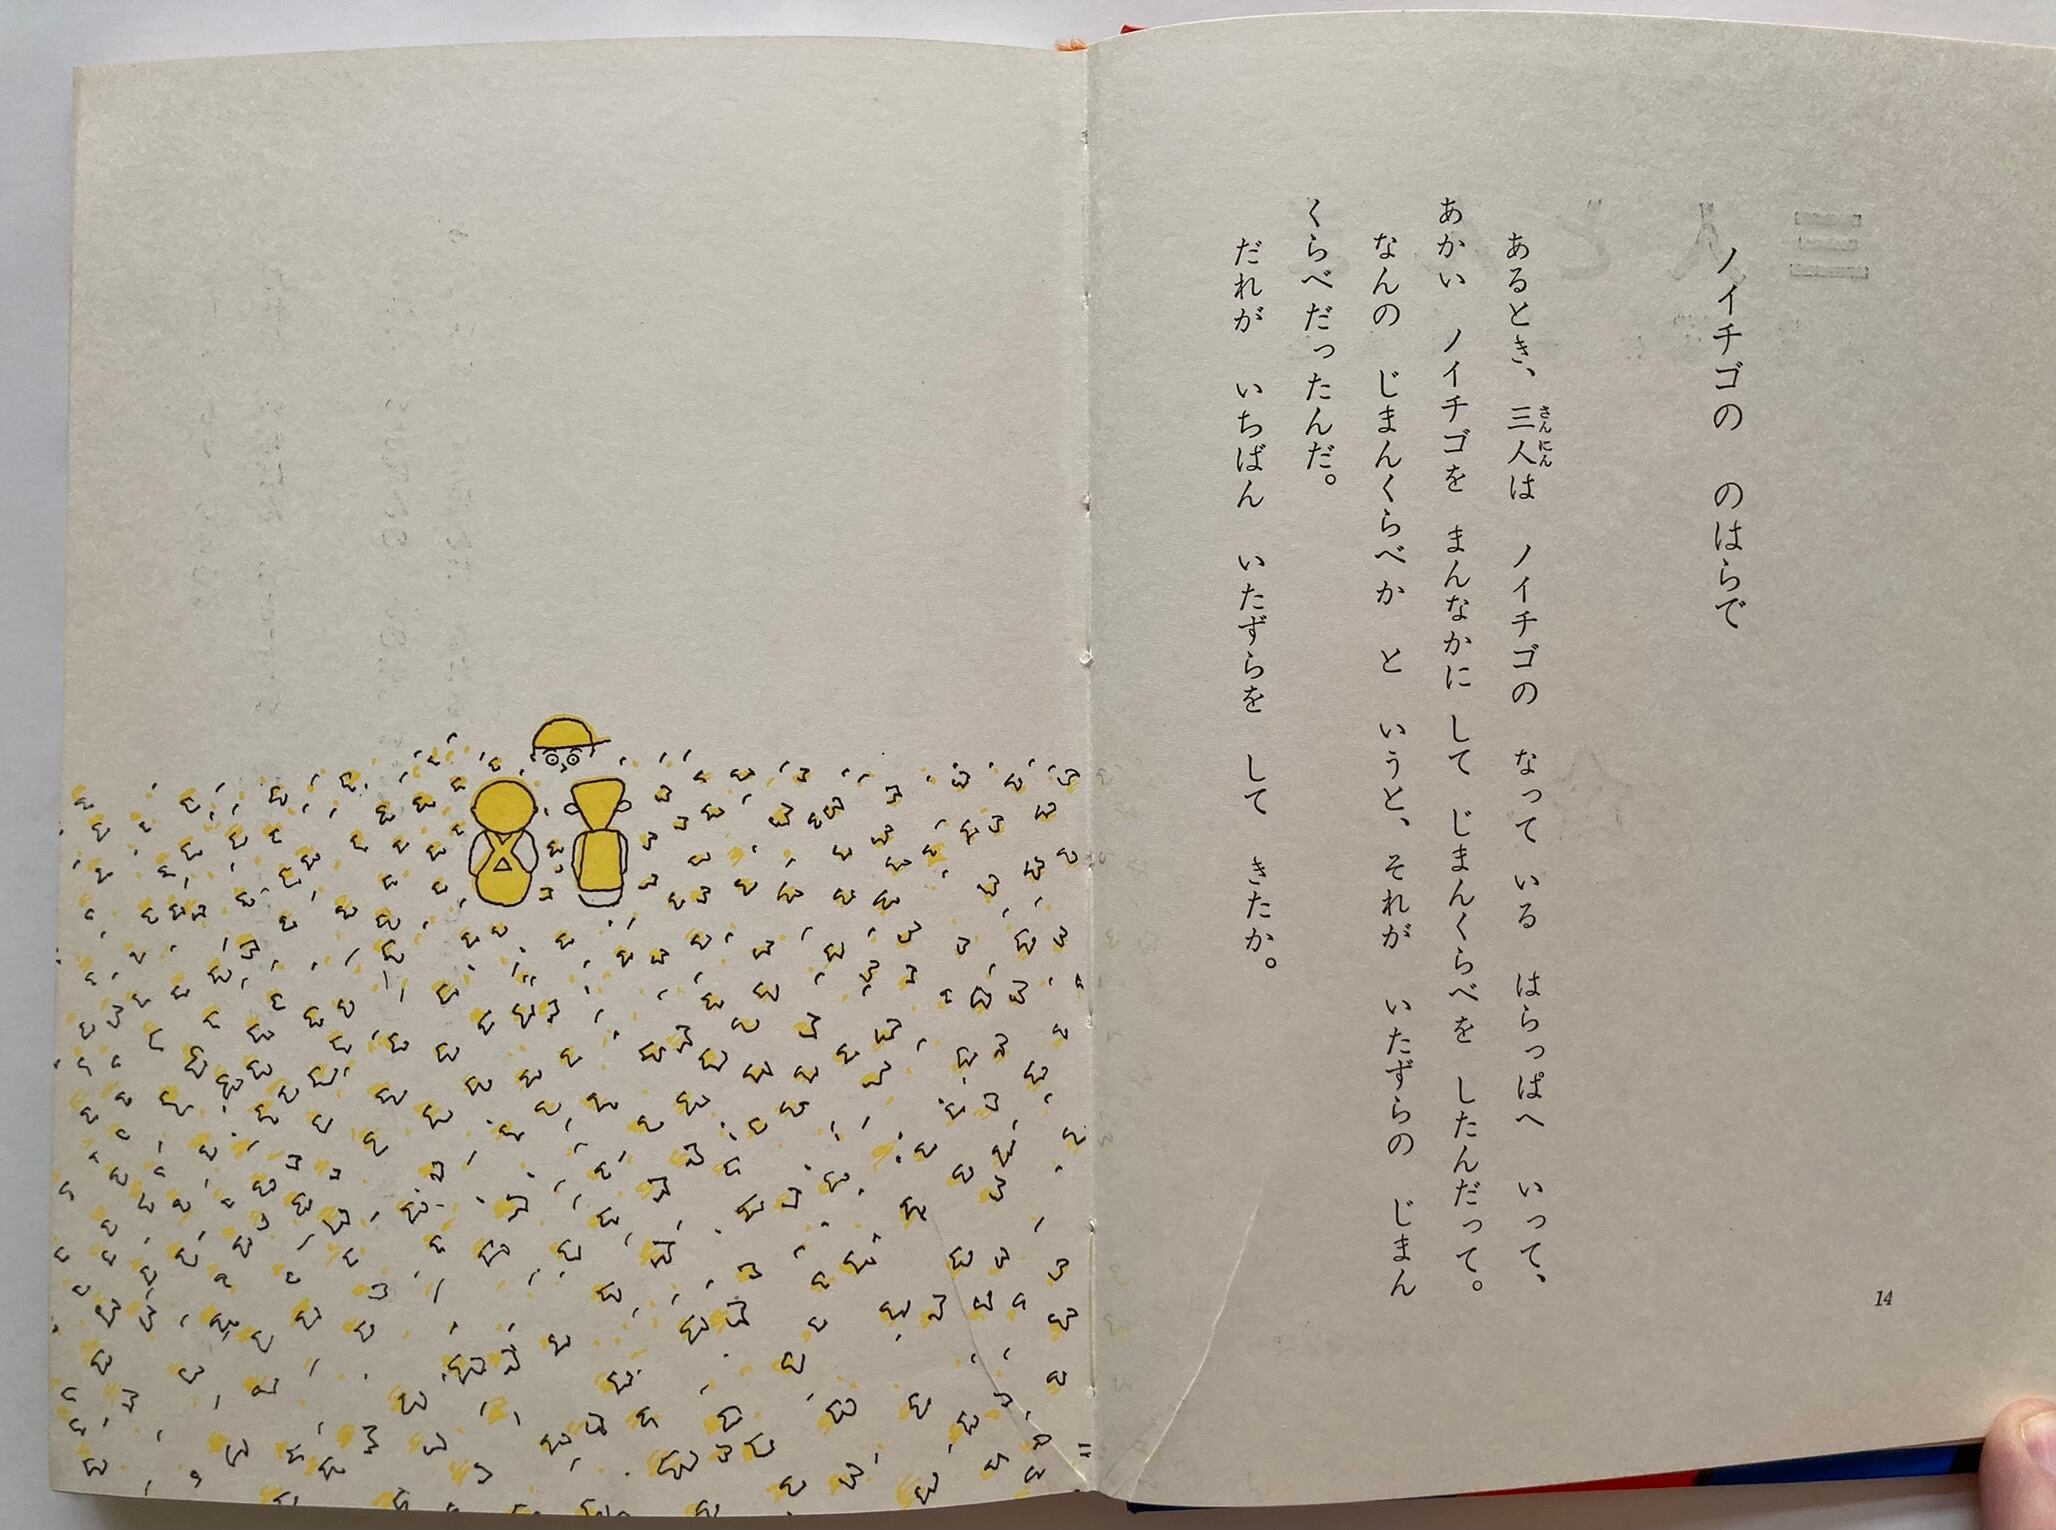 ノイチゴの のはらで
あるとき、三人は ノイチゴの なって いる はらっぱへ いって、
さんにん
あかい ノイチゴを まんなかに して じまんくらべを したんだって。
なんの じまんくらべか と いうと、それが いたずらの じまん
くらべだったんだ。
だれが いちばん いたずらを して きたか。
14